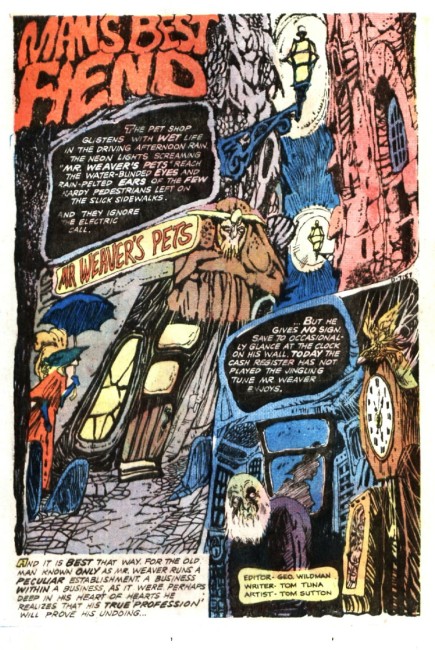 MAN'S BEST
FIEND
THE PET SHOP
GLISTENS WITH WET LIFE
IN THE DRIVING AFTERNOON RAIN.
THE NEON LIGHTS SCREAMING
'MR. WEAVER'S PETS' REACH
THE WATER-BLINDED EYES AND
RAIN-PELTED EARS OF THE FEW
HARDY PEDESTRIANS LEFT ON
THE SLICK SIDEWALKS.
AND THEY IGNORE
THE ELECTRIC
CALL.
MR WEAVER'S PETS
...BUT HE
GIVES NO SIGN,
SAVE TO OCCASIONAL-
LY GLANCE AT THE CLOCK
ON HIS WALL. TODAY THE
CASH REGISTER HAS NOT
PLAYED THE JINGLING
TUNE MR. WEAVER
ENJOYS.
AND IT IS BEST THAT WAY. FOR THE OLD
MAN KNOWN ONLY AS MR. WEAVER RUNS A
PECULIAR ESTABLISHMENT. A BUSINESS
WITHIN A BUSINESS, AS IT WERE. PERHAPS
DEEP IN HIS HEART OF HEARTS HE
REALIZES THAT HIS 'TRUE PROFESSION'
WILL PROVE HIS UNDOING...
EDITOR - GEO. WILDMAN
WRITER - TOM TUNA
ARTIST - TOM SUTTON